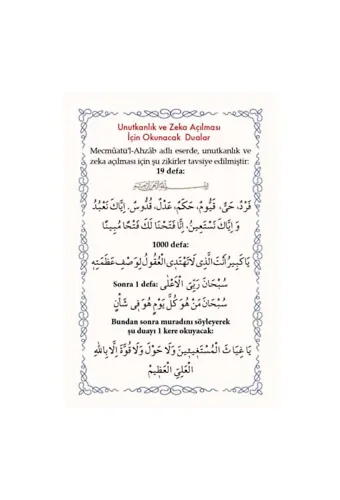 Unutkanlık ve Zeka Açılması
İçin Okunacak Dualar
Mecmûatü'l-Ahzâb adlı eserde, unutkanlık ve
zeka açılması için şu zikirler tavsiye edilmiştir:
19 defa:
فَرْدٌ، حَيٌّ، قَيُّومٌ، حَكَمٌ، عَدْلٌ، قُدُّوسٌ. اِيَّاكَ نَعْبُدُ
وَ اِيَّاكَ نَسْتَعِينُ، اِنَّا فَتَحْنَا لَكَ فَتْحًا مُبِينًا
1000 defa:
يَا كَبِيرُ اَنْتَ الَّذِى لَا تَهْتَدِى الْعُقُولُ لِوَصْفِ عَظَمَتِهِ
Sonra 1 defa: سُبْحَانَ رَبِّىَ الْاَعْلٰى
سُبْحَانَ مَنْ هُوَ كُلَّ يَوْمٍ هُوَ فِى شَأْنٍ
Bundan sonra muradını söyleyerek
şu duayı 1 kere okuyacak:
يَا غِيَاثَ الْمُسْتَغِيثِينَ وَلَا حَوْلَ وَلَا قُوَّةَ اِلَّا بِاللهِ
الْعَلِيِّ الْعَظِيمِ